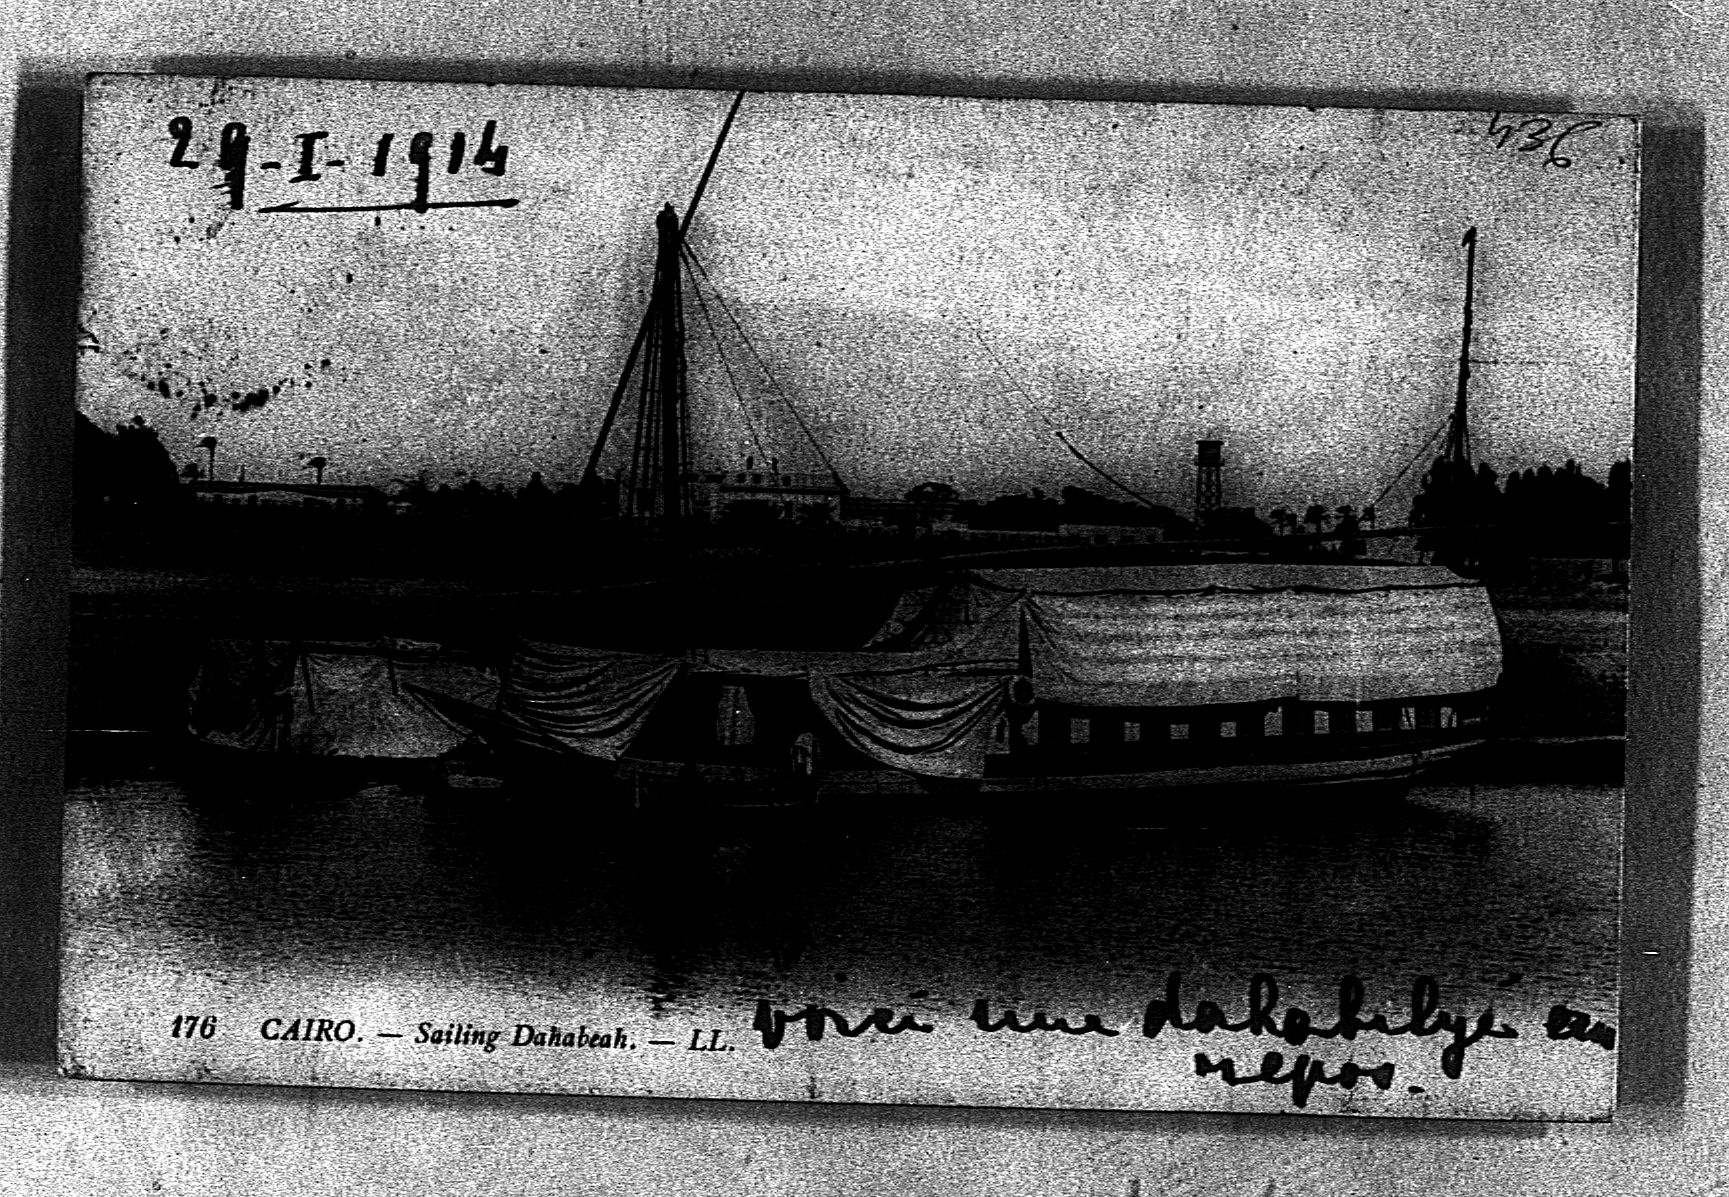 29-I-1914
436
176 CAIRO. — Sailing Dahabeah. — LL.
voici une dahabilyé en
repos.